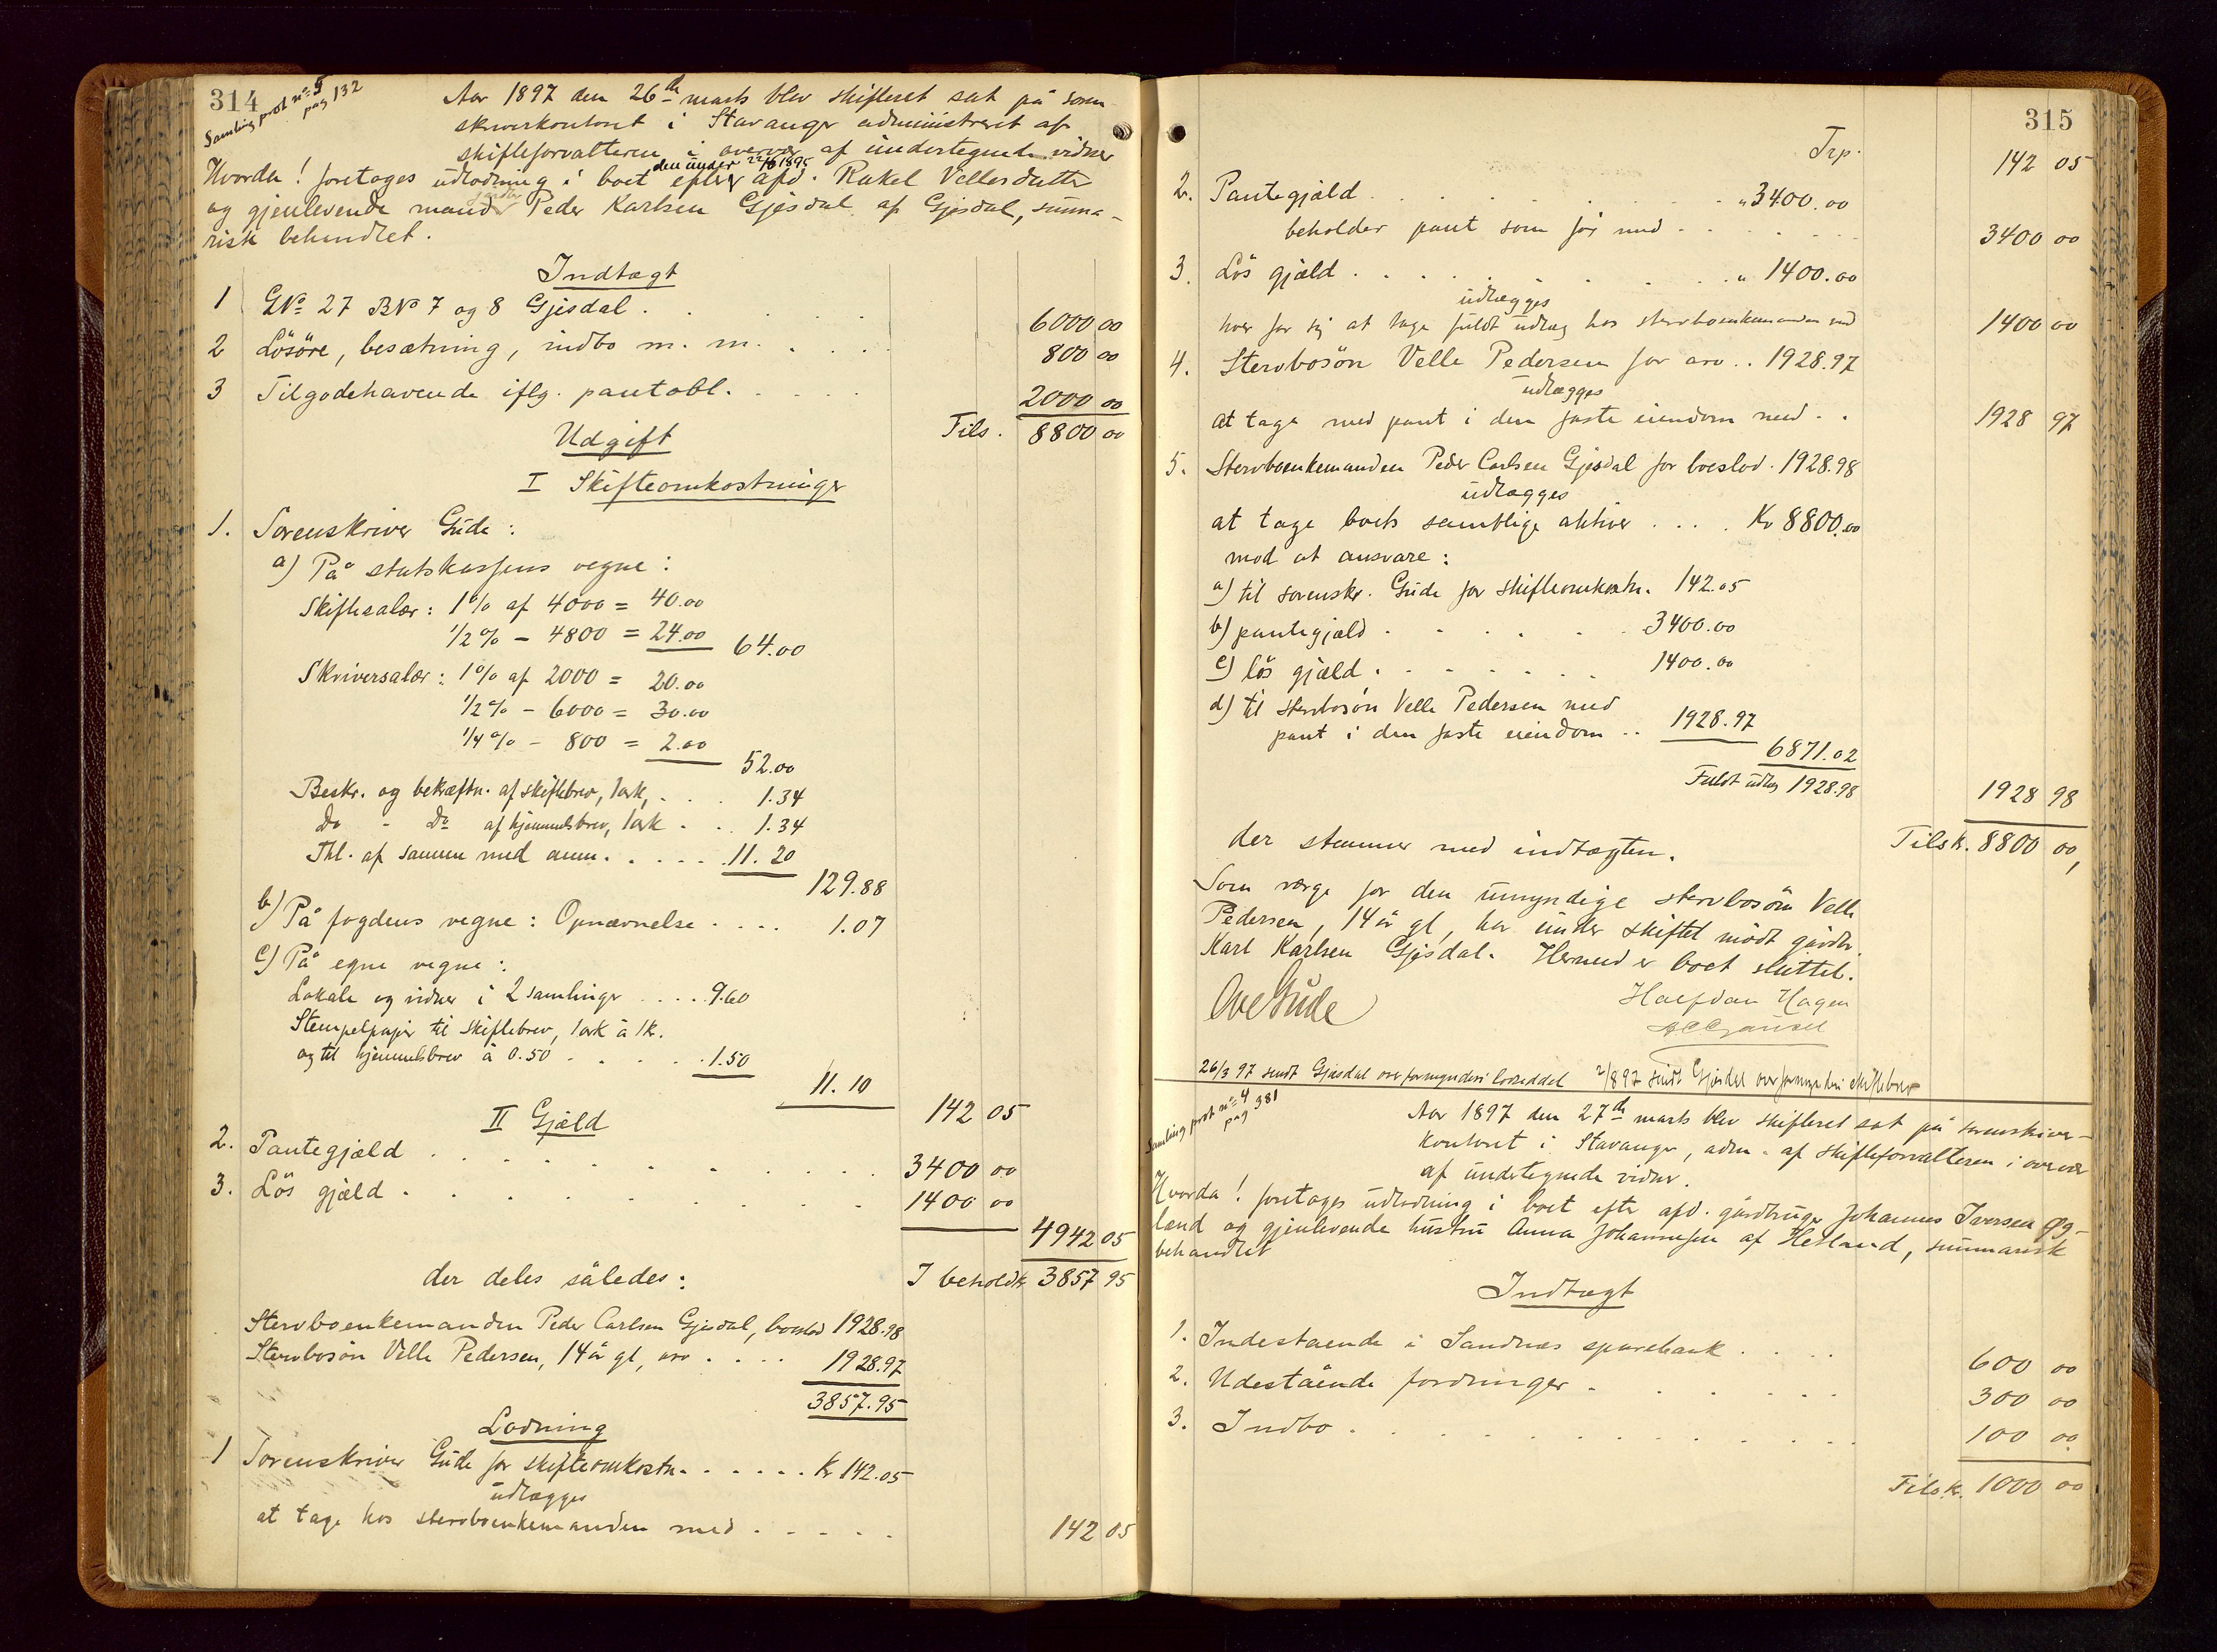 314
Samling prot nº: 5
pag 132
Aar 1897 den 26de marts blev skifteret sat på soren-
skriverkontoret i Stavanger administreret af
skifteforvalteren i overvær af undertegnede vidner
Hvorda! foretages udlodning i boet efter den under 22/6 1895 afd. Rakel Vellesdatter
og gjenlevende mand Peder Karlsen Gjesdal af Gjesdal, summa-
risk behandlet.
Indtægt
1 GNo 27 BNo 7 og 8 Gjesdal . . . . . 6000 00
2 Lösöre, besætning, indbo m. m. . . . . 800 00
3 Tilgodehavende iflg. pantobl. . . . . 2000 00
Tils. 8800 00
Udgift
I Skifteomkostninger
1. Sorenskriver Gude:
a) På statskassens vegne:
Skiftesalær: 1% af 4000 = 40.00
1/2% - 4800 = 24.00 64.00
Skriversalær: 1% af 2000 = 20.00
1/2% - 6000 = 30.00
1/4% - 800 = 2.00
52.00
Beskr. og bekræftn. af skiftebrev, 1 ark, . . . 1.34
Do - Do af hjemmelsbrev, 1 ark . . . 1.34
Thl. af samme med anm. . . . . . 11.20
129.88
b) På fogdens vegne: Opnævnelse . . . . 1.07
c) På egne vegne:
Lokale og vidner i 2 samlinger . . . . 9.60
Stempelpapir til skiftebrev, 1 ark à 1 k.
og til hjemmelsbrev à 0.50 . . . . . 1.50
11.10
142 05
II Gjæld
2. Pantegjæld . . . . . . . . . 3400 00
3. Lös gjæld . . . . . . . . . 1400 00
4942 05
I behold k. 3857 95
der deles således:
Stervboenkemanden Peder Carlsen Gjesdal, boeslod 1928.98
Stervbosön Velle Pedersen, 14 år gl, arv . . . . 1928.97
3857.95
Lodning
1 Sorenskriver Gude for skifteomkostn. . . . . . Kr 142.05
udlægges
at tage hos stervboenkemanden med . . . . . 142 05
315
Trp. 142 05
2. Pantegjæld . . . . . . . . . " 3400.00
beholder pant som før med . . . . . 3400 00
3. Lös gjæld . . . . . . . . . " 1400.00
udlægges
hver for sig at tage fuldt udlæg hos stervboenkemanden med 1400 00
4. Stervbosön Velle Pedersen for arv . . 1928.97
udlægges
at tage med pant i den faste eiendom med . . 1928 97
5. Stervboenkemanden Peder Carlsen Gjesdal for boeslod . 1928.98
udlægges
at tage boets samtlige aktiver . . . . Kr 8800.00
mod at ansvare:
a) til sorenskr. Gude for skifteomkostn. 142.05
b) pantegjæld . . . . . . 3400.00
c) lös gjæld . . . . . . . 1400.00
d) til stervbosön Velle Pedersen med
pant i den faste eiendom . . 1928.97
6871.02
Fuldt udlæg 1928.98 1928 98
der stemmer med indtægten. Tils k. 8800 00,
Som værge for den umyndige stervbosön Velle
Pedersen, 14 år gl, har under skiftet mödt gårdbr.
Karl Karlsen Gjesdal. Hermed er boet sluttet.
Ove Gude Halfdan Hagen
26/3 97 sendt Gjesdal overformynderi lodseddel 2/8 97 sendt Gjesdal overformynderi skiftebrev
Samling prot nº: 4
pag 381
Aar 1897 den 27de marts blev skifteret sat på sorenskriver-
kontoret i Stavanger, adm. af skifteforvalteren i overvær
af undertegnede vidner.
Hvorda! foretages udlodning i boet efter afd. gårdbruger Johannes Iversen Øg-
land og gjenlevende hustru Anna Johannesen af Hetland, summarisk
behandlet
Indtægt
1. Indestaende i Sandnæs sparebank . . . . 600 00
2. Udestående fordringer . . . . . . 300 00
3. Indbo . . . . . . . . . . . 100 00
Tils k. 1000 00